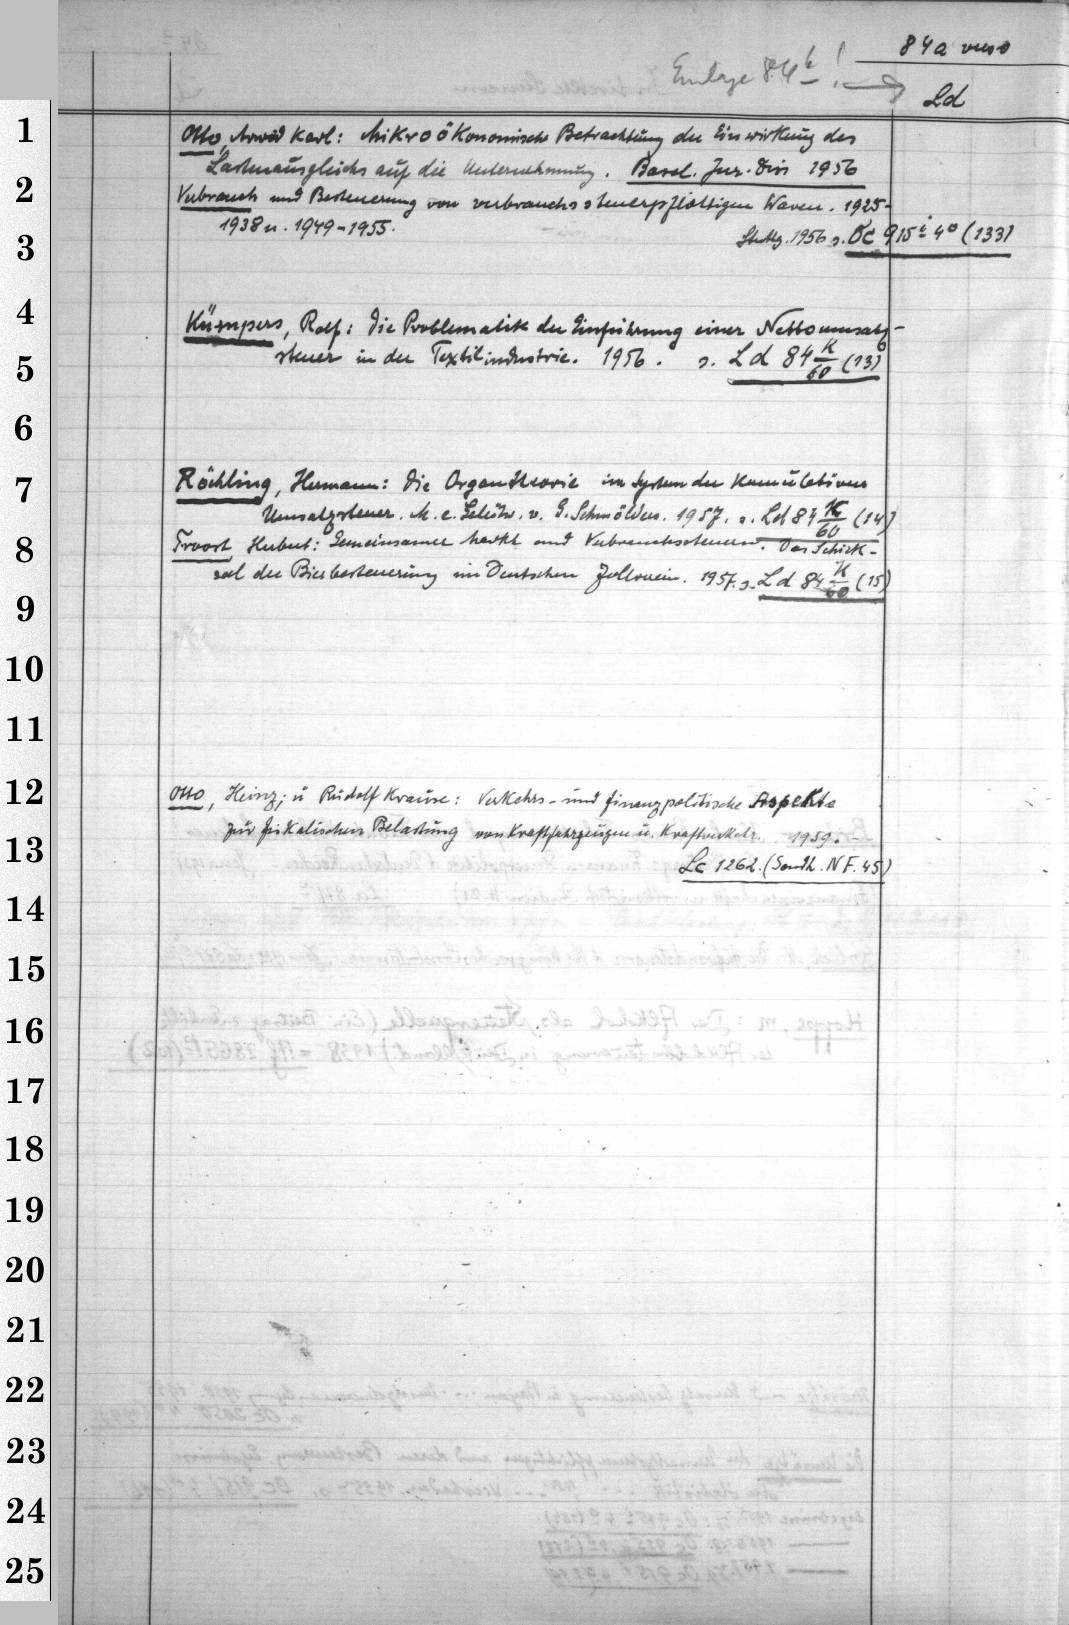 84a verso
Einlage 84b !
Ld
1
Otto, Arwed Karl: Mikroökonomische Betrachtung der Einwirkung des
Lastenausgleichs auf die Unternehmung. Basel. Jur. Diss 1956
2
Verbrauch und Besteuerung von verbrauchssteuerpflichtigen Waren. 1925-
1938 u. 1949-1955.
Stuttg. 1956 s. Oc 915 i 4° (133)
3
4
Kümpers, Rolf: Die Problematik der Einführung einer Nettoumsatz-
steuer in der Textilindustrie. 1956. s. Ld 84 K/60 (13)
5
6
7
Röchling, Hermann: Die Organtheorie im System der kumulativen
Umsatzsteuer. M. e. Geleitw. v. G. Schmölders. 1957. s. Ld 84 K/60 (14)
8
Troost, Hubert: Gemeinsamer Markt und Verbrauchssteuern. Das Schick-
sal der Bierbesteuerung im Deutschen Zollverein. 1957. s. Ld 84 K/60 (15)
9
10
11
12
Otto, Heinz, u Rudolf Krause: Verkehrs- und finanzpolitische Aspekte
zur fiskalischen Belastung von Kraftfahrzeugen u. Kraftverkehr. 1959. -
13
Lc 1262. (Sondh. N F. 45)
14
15
16
17
18
19
20
21
22
23
24
25